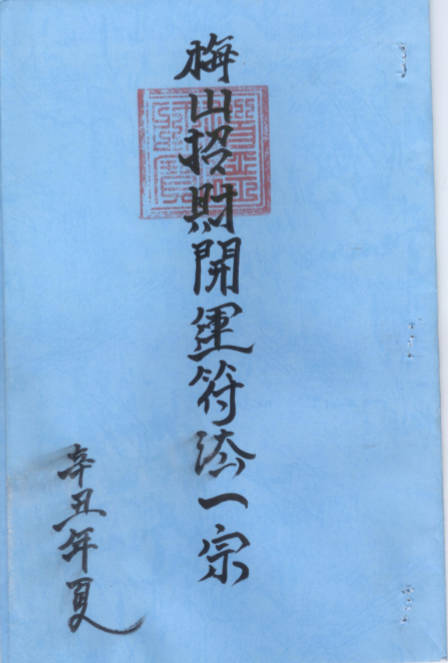 梅山招財開運符法一宗
辛丑年夏